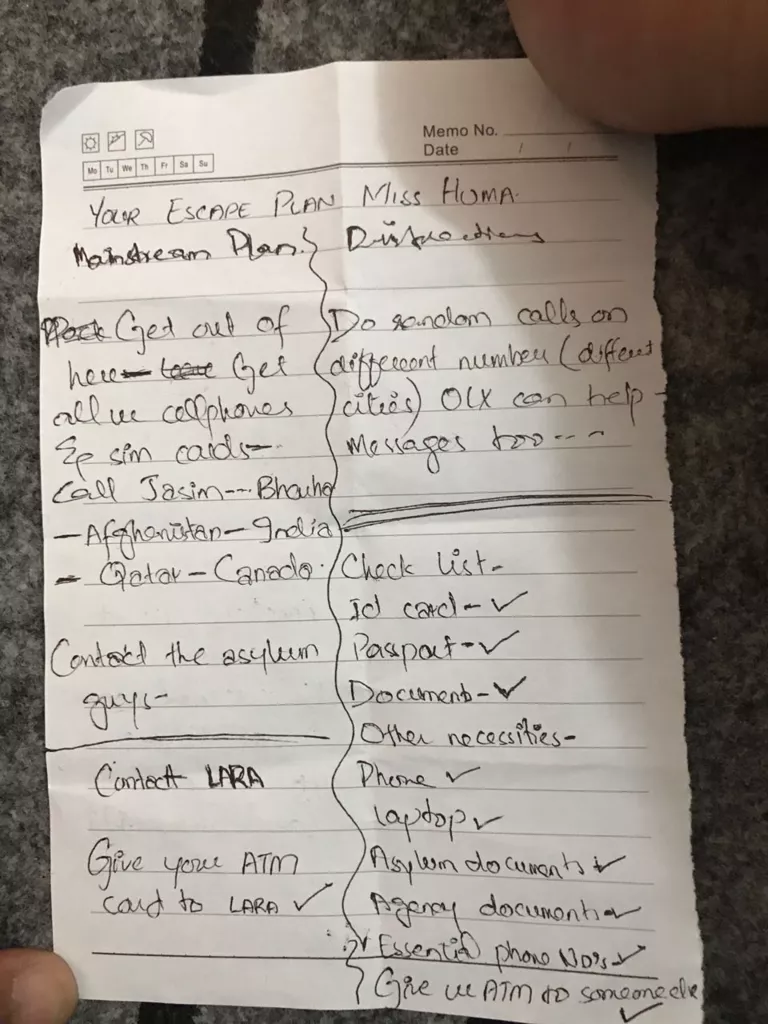 Memo No.
Date / /
Mo Tu We Th Fr Sa Su
YOUR ESCAPE PLAN MISS HUMA.
Mainstream Plan.
Get out of
here Get
all ur cellphones
& sim cards-
Call Jasim---
-Afghanistan-India
- Qatar-Canada.
Contact the asylum
guys-
Contact LARA
Give your ATM
card to LARA ✓
Distractions
Do random calls on
different number (different
cities) OLX can help-
Messages too---
Check list-
Id card-✓
Passport-✓
Documents-✓
Other necessities-
Phone ✓
laptop ✓
Asylum documents ✓
Agency documents ✓
Essential phone No's ✓
Give ur ATM to someone else
✓